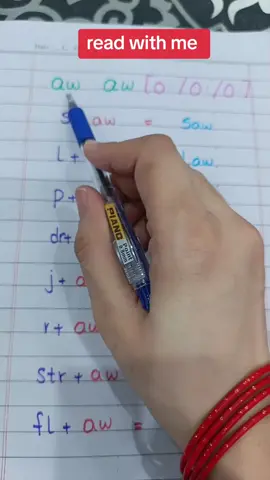 read with me
aw aw [o / o / o]
s aw = saw
l + law
p +
dr+
j + a
r + aw
str + aw
fl + aw =
PIANO